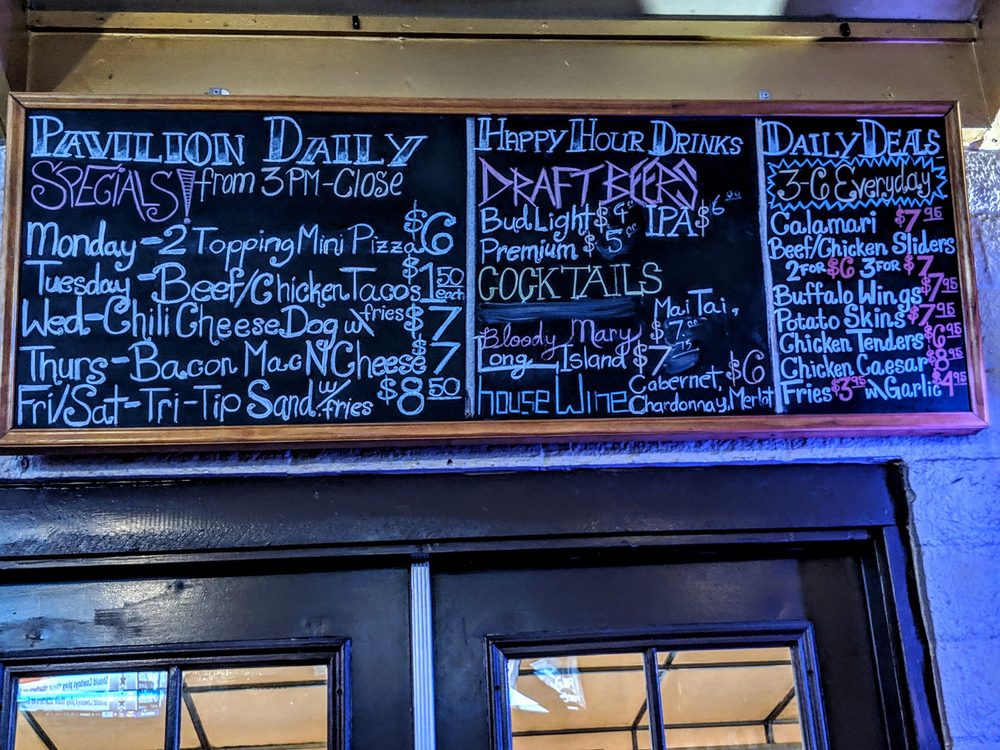 PAVILION DAILY
SPECIALS! from 3PM-Close
Monday-2 Topping Mini Pizza $6
Tuesday-Beef/Chicken Tacos $1.50 each
Wed-Chili Cheese Dog w/ fries $7
Thurs-Bacon Mac N Cheese $7
Fri/Sat-Tri-Tip Sand. w/ fries $8.50
HAPPY HOUR DRINKS
DRAFT BEERS
Bud Light $4 IPA $6.00
Premium $5.00
COCKTAILS
Mai Tai, $7.00
Bloody Mary
Long Island $7
House Wine
Cabernet, $6
Chardonnay, Merlot
DAILY DEALS
3-6 Everyday
Calamari $7.95
Beef/Chicken Sliders
2 FOR $6 3 FOR $7
Buffalo Wings $7.95
Potato Skins $7.95
Chicken Tenders $6.95
Chicken Caesar $8.95
Fries $3.95 w/ Garlic $4.95